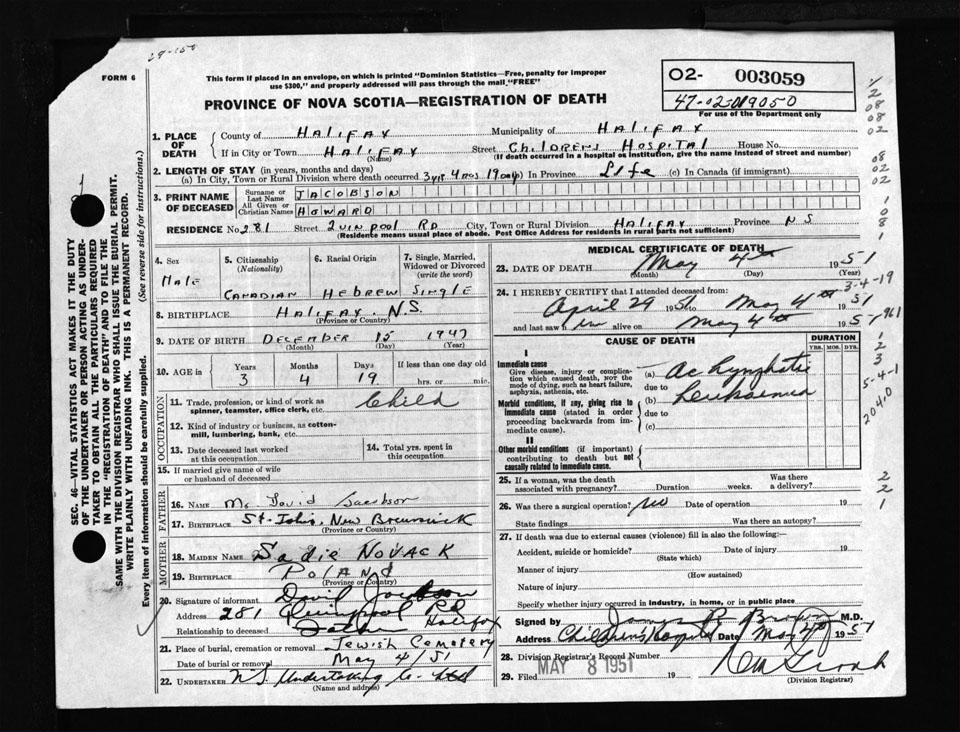 29-150
FORM 6
This form if placed in an envelope, on which is printed "Dominion Statistics—Free, penalty for improper
use $300," and properly addressed will pass through the mail "FREE"
PROVINCE OF NOVA SCOTIA—REGISTRATION OF DEATH
02- 003059
47-02-019050
For use of the Department only
1. PLACE OF DEATH
County of HALIFAX Municipality of HALIFAX
If in City or Town HALIFAX Street CHILDRENS HOSPITAL House No.
(Name) (If death occurred in a hospital or institution, give the name instead of street and number)
2. LENGTH OF STAY (in years, months and days)
(a) In City, Town or Rural Division where death occurred 3 yrs 4 mos 19 days (b) In Province Life (c) In Canada (if immigrant)
3. PRINT NAME OF DECEASED
Surname or Last Name JACOBSON
All Given or Christian Names HOWARD
RESIDENCE No 281 Street QUINPOOL RD City, Town or Rural Division HALIFAX Province NS
(Residence means usual place of abode. Post Office Address for residents in rural parts not sufficient)
4. Sex
MALE
5. Citizenship (Nationality)
CANADIAN
6. Racial Origin
HEBREW
7. Single, Married, Widowed or Divorced (write the word)
SINGLE
8. BIRTHPLACE HALIFAX. N.S.
(Province or Country)
9. DATE OF BIRTH DECEMBER 15 1947
(Month) (Day) (Year)
10. AGE in Years Months Days If less than one day old
3 4 19 hrs. or min.
OCCUPATION
11. Trade, profession, or kind of work as spinner, teamster, office clerk, etc. Child
12. Kind of industry or business, as cotton-mill, lumbering, bank, etc.
13. Date deceased last worked at this occupation
14. Total yrs. spent in this occupation
15. If married give name of wife or husband of deceased
FATHER
16. NAME Mr David Jacobson
17. BIRTHPLACE St. John, New Brunswick
(Province or Country)
MOTHER
18. MAIDEN NAME Sadie NOVACK
19. BIRTHPLACE POLAND
(Province or Country)
20. Signature of informant David Jacobson
Address 281 Quinpool Rd Halifax
Relationship to deceased Father
21. Place of burial, cremation or removal Jewish Cemetery
Date of burial or removal May 4/51
22. UNDERTAKER N.S. Undertaking Co. Ltd
(Name and address)
MEDICAL CERTIFICATE OF DEATH
23. DATE OF DEATH May 4th 1951
(Month) (Day) (Year)
3-4-19
24. I HEREBY CERTIFY that I attended deceased from:
April 29 1951 to May 4th 1951
and last saw him alive on May 4th 1951
CAUSE OF DEATH
DURATION
YRS. MOS. DYS.
I
Immediate cause
Give disease, injury or complication which caused death, not the mode of dying, such as heart failure, asphyxia, asthenia, etc.
(a) Ac Lymphatic
due to
Morbid conditions, if any, giving rise to immediate cause (stated in order proceeding backwards from immediate cause).
(b) Leukaemia
due to
(c)
II
Other morbid conditions (if important) contributing to death but not causally related to immediate cause.
25. If a woman, was the death associated with pregnancy? Duration weeks. Was there a delivery?
26. Was there a surgical operation? no Date of operation 19
State findings Was there an autopsy?
27. If death was due to external causes (violence) fill in also the following:—
Accident, suicide or homicide? Date of injury 19
(State which)
Manner of injury
(How sustained)
Nature of injury
Specify whether injury occurred in industry, in home, or in public place
Signed by James R Brown M.D.
Address Childrens Hospital Date May 4th 1951
28. Division Registrar's Record Number
29. Filed MAY 8 1951 19
(Division Registrar)
5-4-1
204.0
SEC. 46—VITAL STATISTICS ACT MAKES IT THE DUTY
OF THE UNDERTAKER OR PERSON ACTING AS UNDER-
TAKER TO OBTAIN ALL THE PARTICULARS REQUIRED
IN THE "REGISTRATION OF DEATH" AND TO FILE THE
SAME WITH THE DIVISION REGISTRAR WHO SHALL ISSUE THE BURIAL PERMIT.
WRITE PLAINLY WITH UNFADING INK. THIS IS A PERMANENT RECORD.
Every item of information should be carefully supplied. (See reverse side for instructions.)